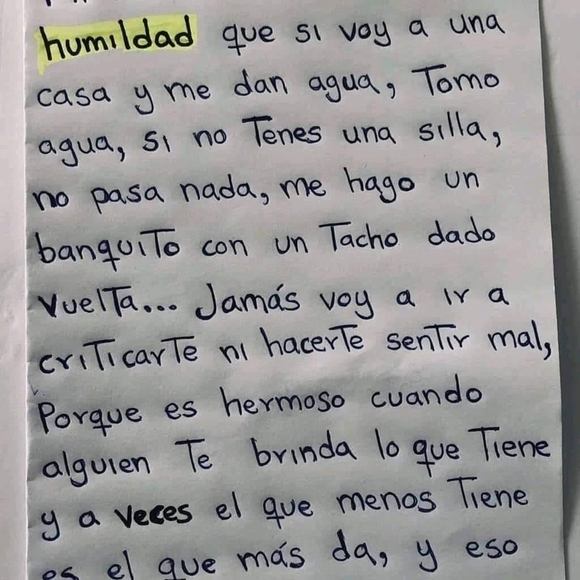 humildad que si voy a una
casa y me dan agua, Tomo
agua, si no Tenes una silla,
no pasa nada, me hago un
banquiTo con un Tacho dado
vuelTa... Jamás voy a ir a
criTicarTe ni hacerTe senTir mal,
Porque es hermoso cuando
alguien Te brinda lo que Tiene
y a veces el que menos Tiene
es el que más da, y eso